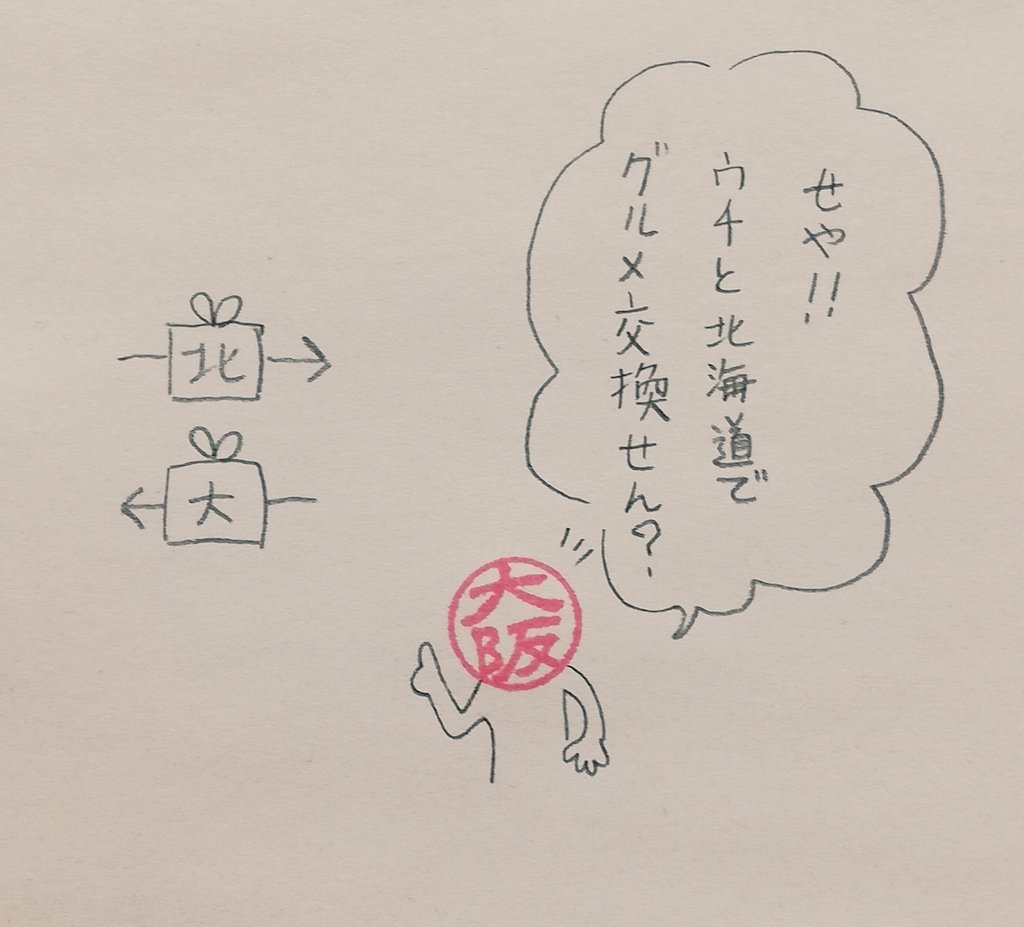 せや!!
ウチと北海道で
グルメ交換せん?
北
大
大阪